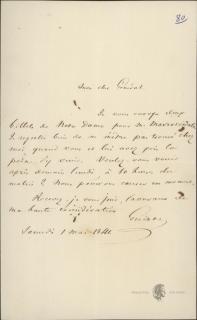 80
Mon cher Général
Je vous envoye deux
billets de Notre Dame pour Mr
Je regrette bien de ne m'être pas trouvé chez
moi, quand vous et lui avez pris la
peine d'y venir. Voulez vous venir
après demain lundi à 10 heures du
matin ? Nous pourrons causer en
Recevez, je vous prie, l'assurance de
ma haute considération
Samedi 1 mai 1841